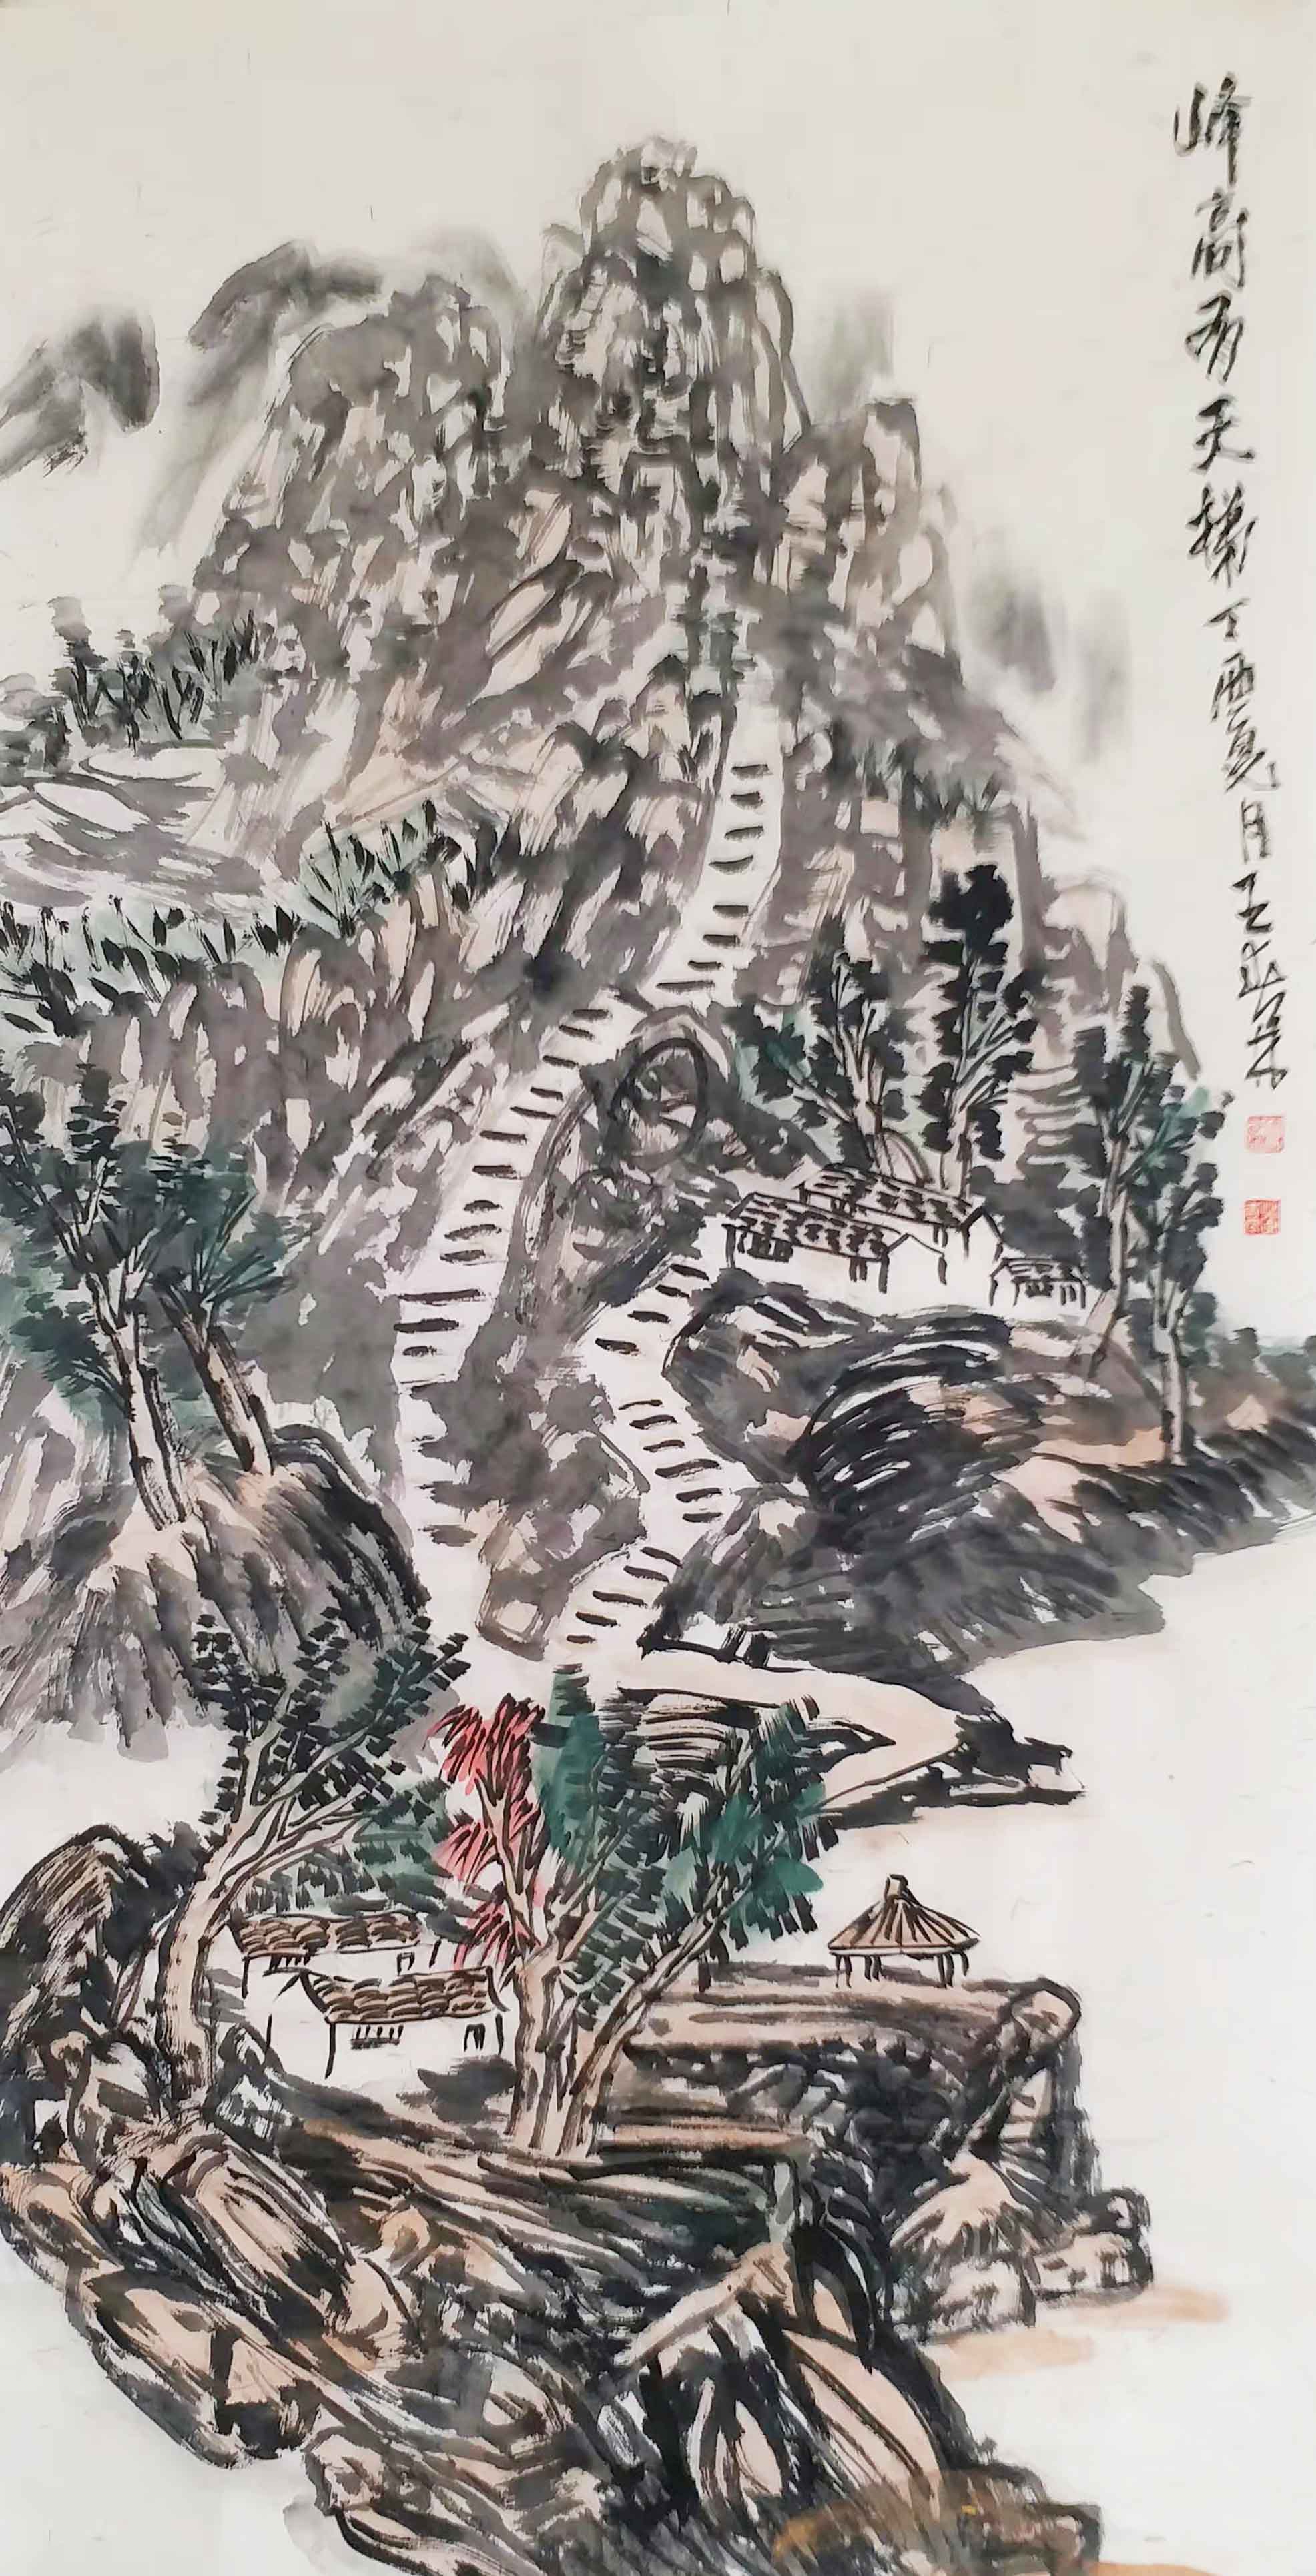 峰高有天梯丁酉夏月王